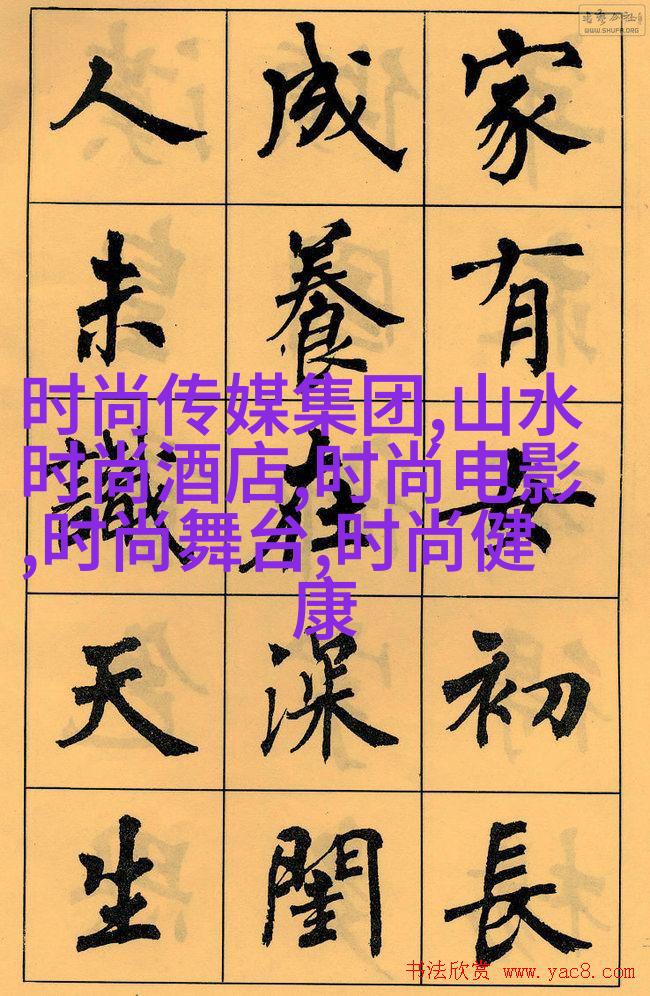 WWW.SHUFA.ORG
家有女初長
成養在深閨
人未識天生
时尚传媒集团,山水
时尚酒店,时尚电影
,时尚舞台,时尚健
康
书法欣赏 www.yac8.com